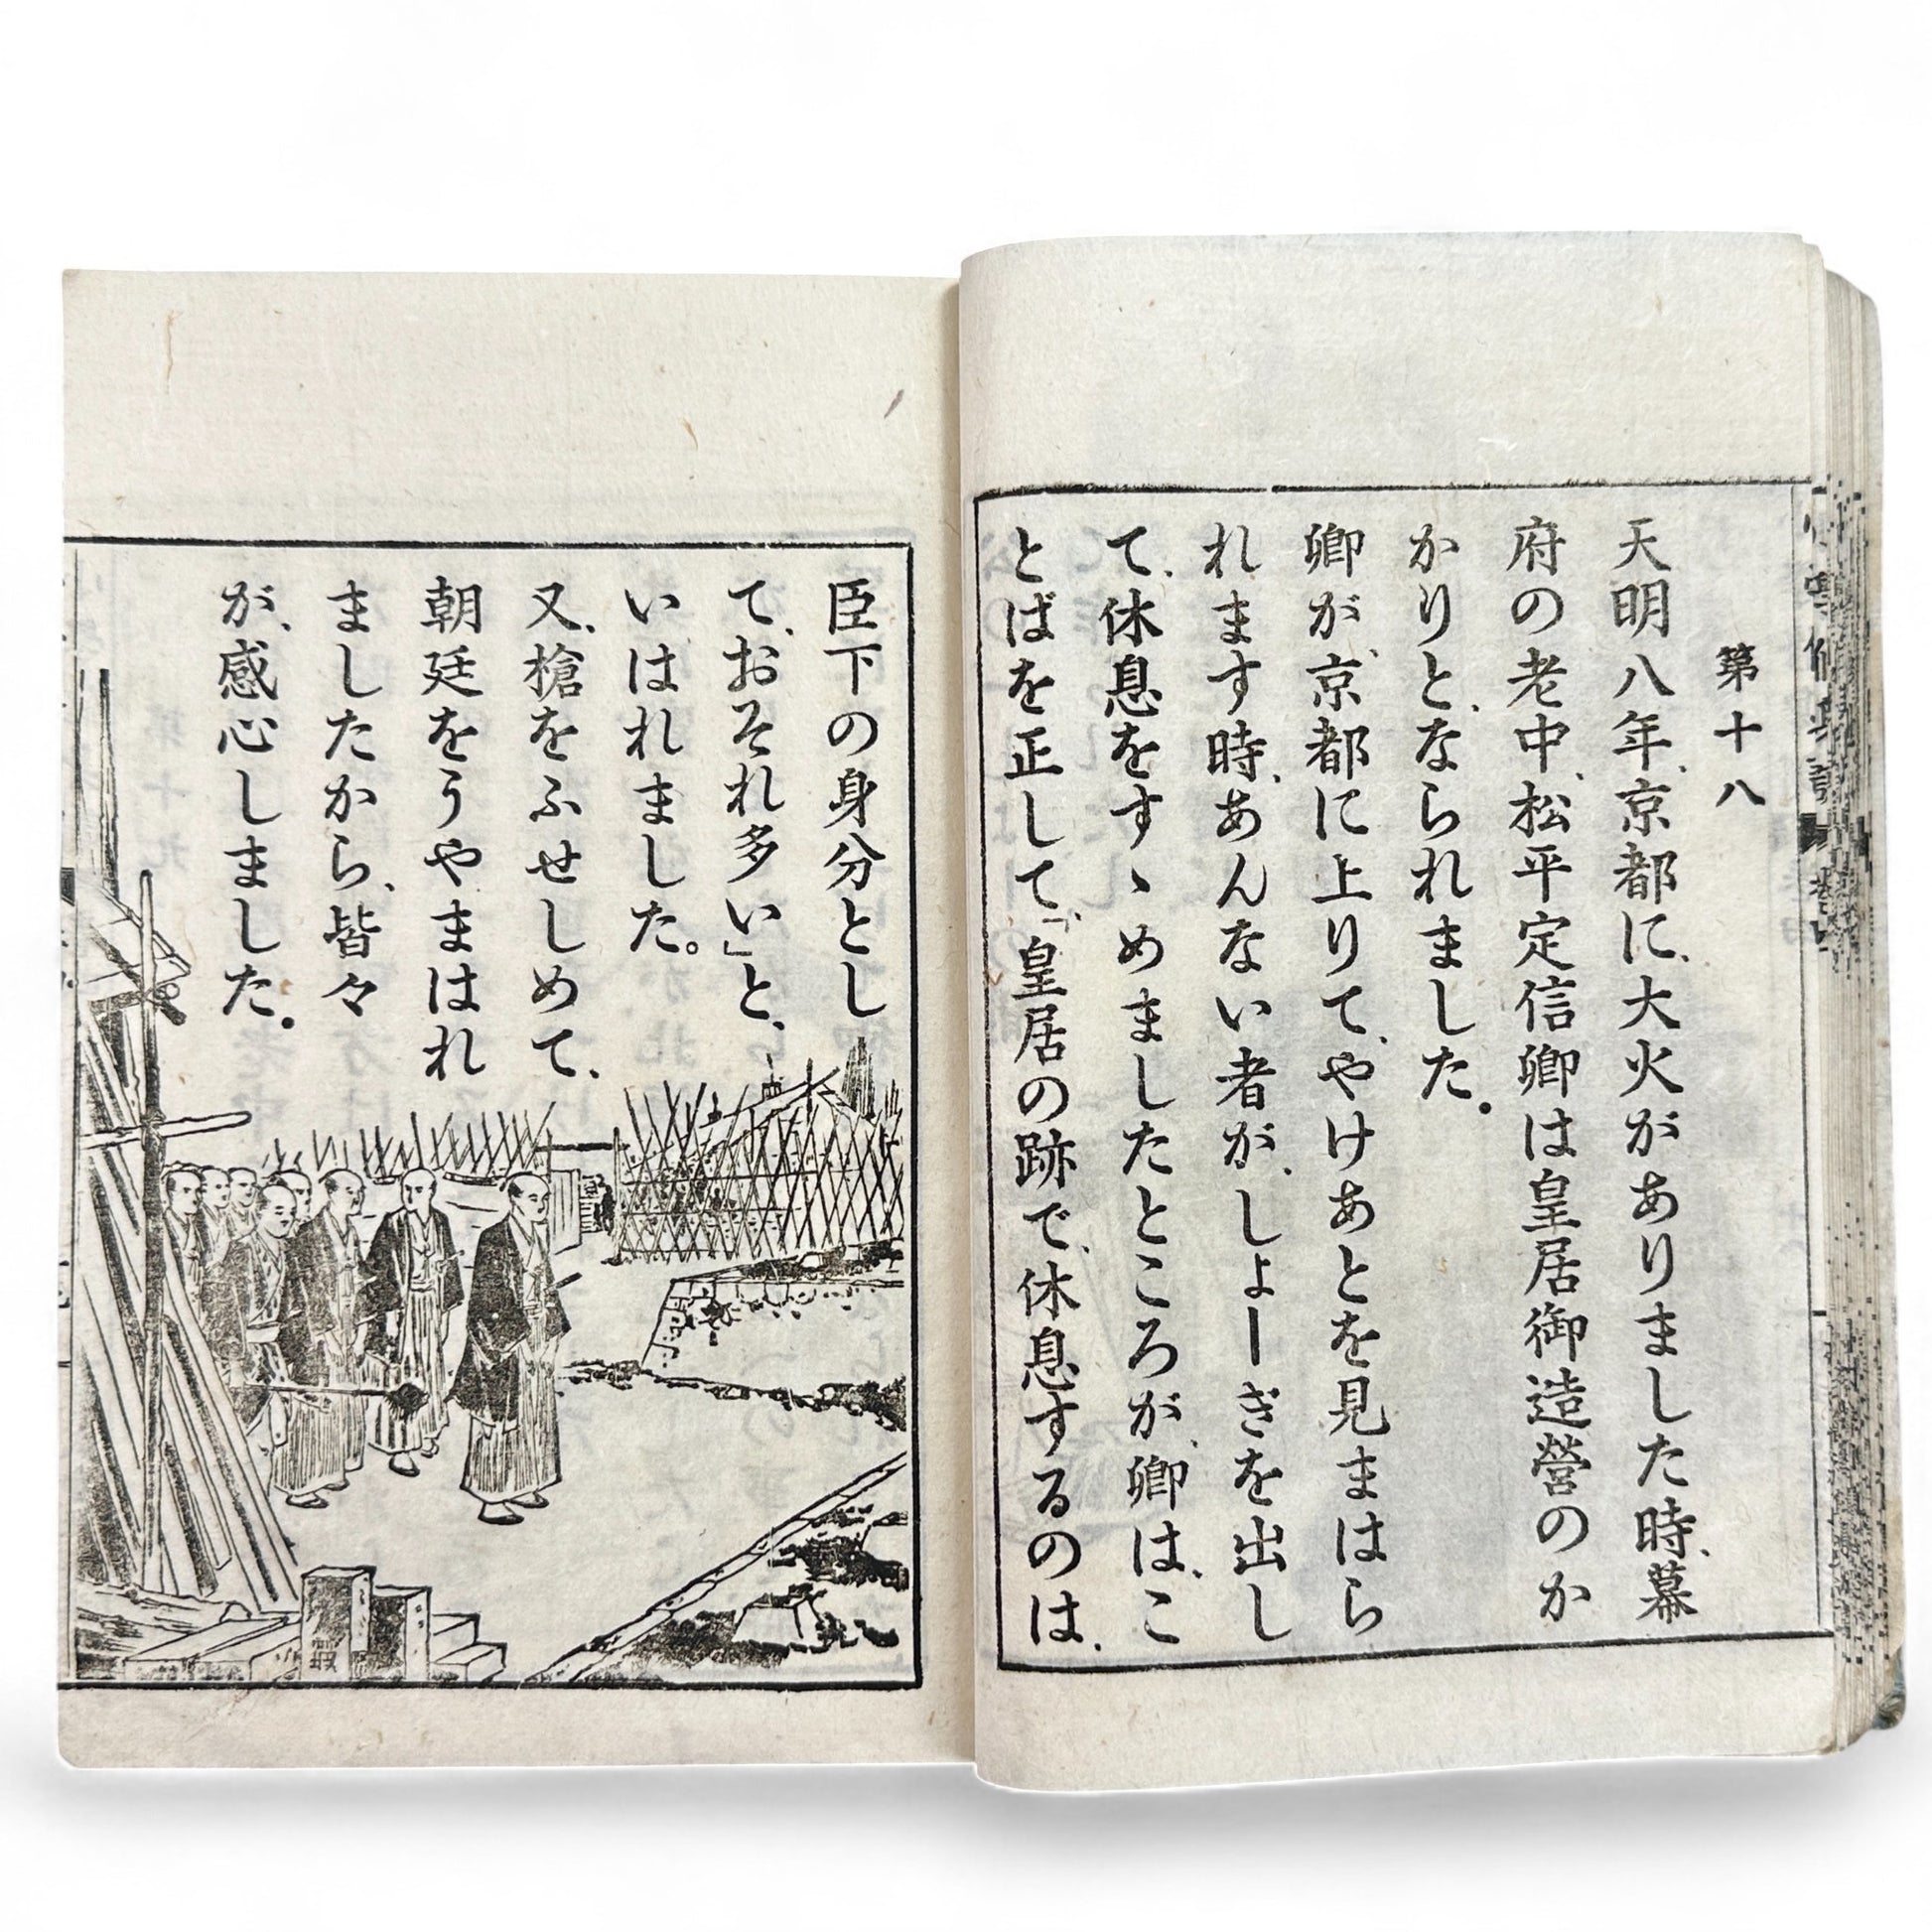 第十八
天明八年、京都に、大火がありました時、幕
府の老中、松平定信卿は皇居御造營のか
かりと、なられました。
卿が、京都に上りて、やけあとを見まはら
れます時、あんない者が、しょーぎを出し
て、休息をすゝめましたところが、卿は、こ
とばを正して、「皇居の跡で、休息するのは、
臣下の身分とし
て、おそれ多い」と、
いはれました。
又、槍をふせしめて、
朝廷をうやまはれ
ましたから、皆々
が、感心しました。